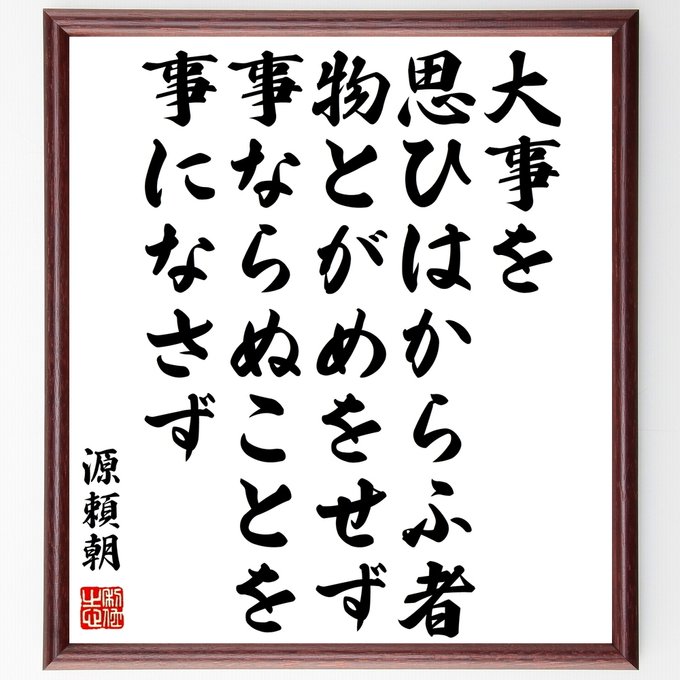 大事を
思ひはからふ者
物とがめをせず
事ならぬことを
事になさず
源頼朝